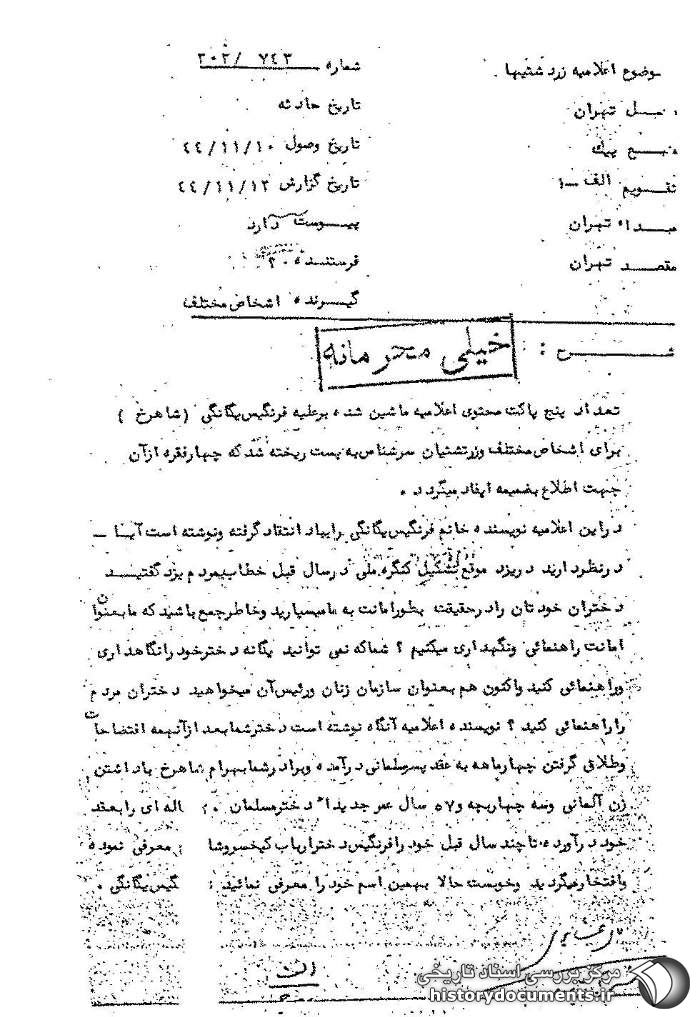 موضوع اعلامیه زردشتیها
شماره ۷۴۳ / ۳۰۲
تهران
تاریخ حادثه
منبع پیک
تاریخ وصول ۴۴/۱۱/۱۰
تقویم الف -۱
تاریخ گزارش ۴۴/۱۱/۱۲
مبداء تهران
پیوست دارد
مقصد تهران
فرستنده ۲۰
گیرنده اشخاص مختلف
شرح :
خیلی محرمانه
تعداد پنج پاکت محتوی اعلامیه ماشین شده برعلیه فرنگیس یگانگی (شاهرخ )
برای اشخاص مختلف وزرتشتیان سرشناس به پست ریخته شد که چهارفقره ازآن
جهت اطلاع بضمیمه ایفاد میگردد .
در این اعلامیه نویسنده خانم فرنگیس یگانگی رابیاد انتقاد گرفته ونوشته است آیا -
درنظردارید دریزد موقع تشکیل کنگره ملی درسال قبل خطاب بمردم یزد گفتید
دختران خودتان رادرحقیقت بطورامانت به مامیسپارید وخاطرجمع باشید که مابعنوان
امانت راهنمائی ونگهداری میکنیم ؟ شماکه نمی توانید یگانه دخترخود رانگاهداری
وراهنمائی کنید واکنون هم بعنوان سازمان زنان ورئیس آن میخواهید دختران مردم
راراهنمائی کنید ؟ نویسنده اعلامیه آنگاه نوشته است دخترشمابعد ازآنهمه افتضاحات
وطلاق گرفتن چهارماهه به عقد پسرسلمانی درآمده وبرادرشمابهرام شاهرخ باداشتن
زن آلمانی وسه چهاربچه و۵۷ سال عمر جدیدا" دخترمسلمان ۲۰ ساله ای رابعقد
خود درآورده تاچند سال قبل خود رافرنگیس دخترارباب کیخسروشا معرفی نموده
وافتخارمیکردید وخوبست حالا بهمین اسم خود را معرفی نمائید : گیس یگانگی .
الف
مرکز بررسی اسناد تاریخی
historydocuments.ir